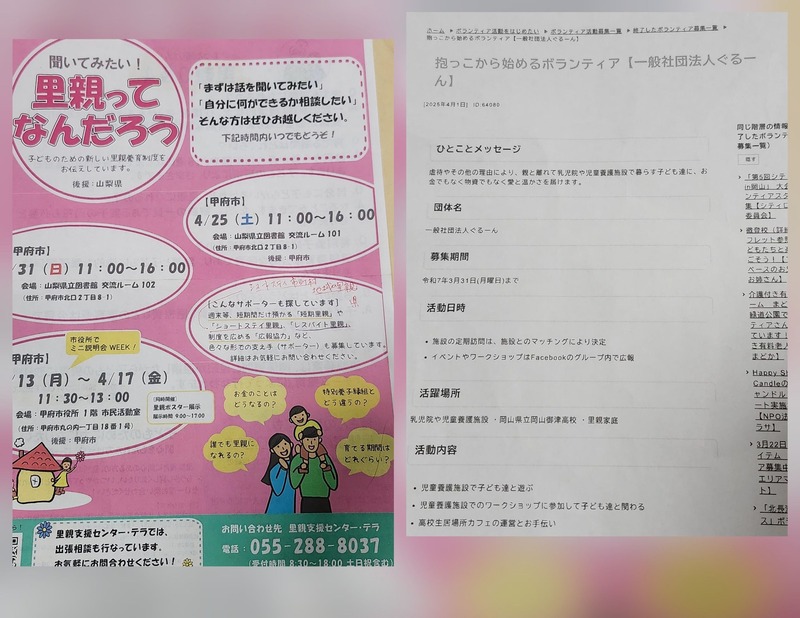 聞いてみたい！
里親って
なんだろう
子どものための新しい里親養育制度を
お伝えしています。
後援：山梨県
「まずは話を聞いてみたい」
「自分に何ができるか相談したい」
そんな方はぜひお越しください。
下記時間内いつでもどうぞ！
【甲府市】
4/25（土）11：00〜16：00
会場：山梨県立図書館 交流ルーム101
（住所：甲府市北口2丁目8-1）
甲府市】
/31（日）11：00〜16：00
会場：山梨県立図書館 交流ルーム102
（住所：甲府市北口2丁目8-1）
【こんなサポーターも探しています】
週末等、短期間だけ預かる「短期里親」や
「ショートステイ里親」、「レスパイト里親」、
制度を広める「広報協力」など、
色々な形での支え手（サポーター）も募集しています。
詳細はお気軽にお問い合わせください。
市役所で
ミニ説明会WEEK！
甲府市】
/13（月）〜4/17（金）
11：30〜13：00
会場：甲府市役所1階 市民活動室
（住所：甲府市丸の内一丁目18番1号）
後援：甲府市
【同時開催】
里親ポスター展示
展示時間 9:00〜17:00
お金のことは
どうなるの？
特別養子縁組と
どう違うの？
誰でも里親に
なれるの？
育てる期間は
どれぐらい？
里親支援センター・テラでは、
出張相談も行なっています。
お気軽にお問合わせください！
お問い合わせ先 里親支援センター・テラ
電話：055-288-8037
（受付時間 8:30〜18:00 土日祝含む）
ホーム ▶ ボランティア活動をはじめたい ▶ ボランティア活動募集一覧 ▶ 終了したボランティア募集一覧 ▶
抱っこから始めるボランティア【一般社団法人ぐるーん】
抱っこから始めるボランティア【一般社団法人ぐるー
ん】
[2025年4月1日] ID:64080
ひとことメッセージ
虐待やその他の理由により、親と離れて乳児院や児童養護施設で暮らす子ども達に、お
金でもなく物資でもなく愛と温かさを届けます。
団体名
一般社団法人ぐるーん
募集期間
令和7年3月31日(月曜日)まで
活動日時
• 施設の定期訪問は、施設とのマッチングにより決定
• イベントやワークショップはFacebookのグループ内で広報
活躍場所
乳児院や児童養護施設・岡山県立岡山御津高校・里親家庭
活動内容
• 児童養護施設で子ども達と遊ぶ
• 児童養護施設でのワークショップに参加して子ども達と関わる
• 高校生居場所カフェの運営とお手伝い
同じ階層の情報
了したボランテ
募集一覧）
隠す
「第5回シテ
in岡山」大会
アスタ
集【シティ
委員会】
フレット参
どもたちと
ごそう！【
ベースのお
お姉さん】
介護付き有
緑道公園で
ティアさん
ています！
き有料老人
まどか】
Happy S
Candleの
ャンドル
ート実施
【NPO法
ラサ】
3月22日
イテム
ア募集中
エリアマ
ト】
「北長
ス」ボラ